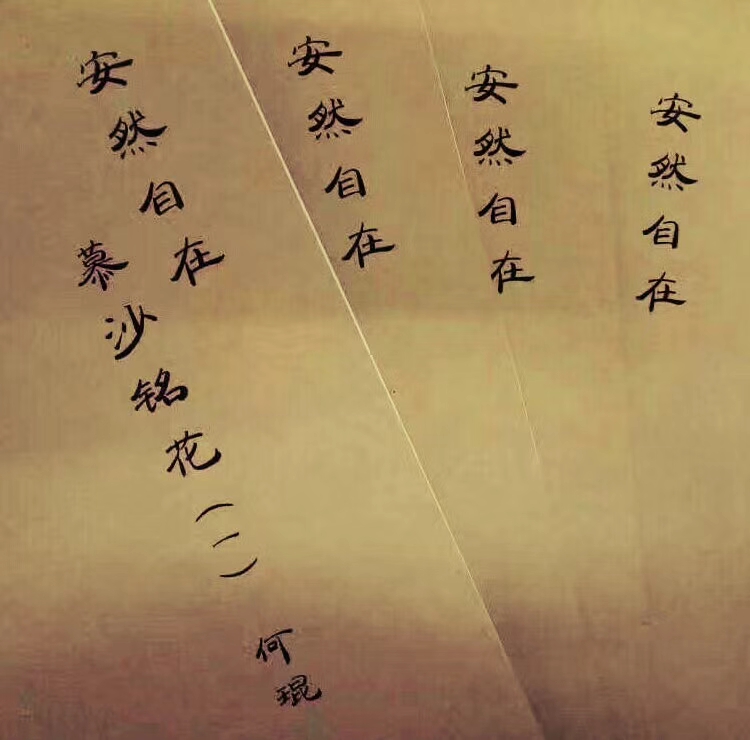 安然自在
安然自在
安然自在
安然自在
慕沙铭花（一）
何琨